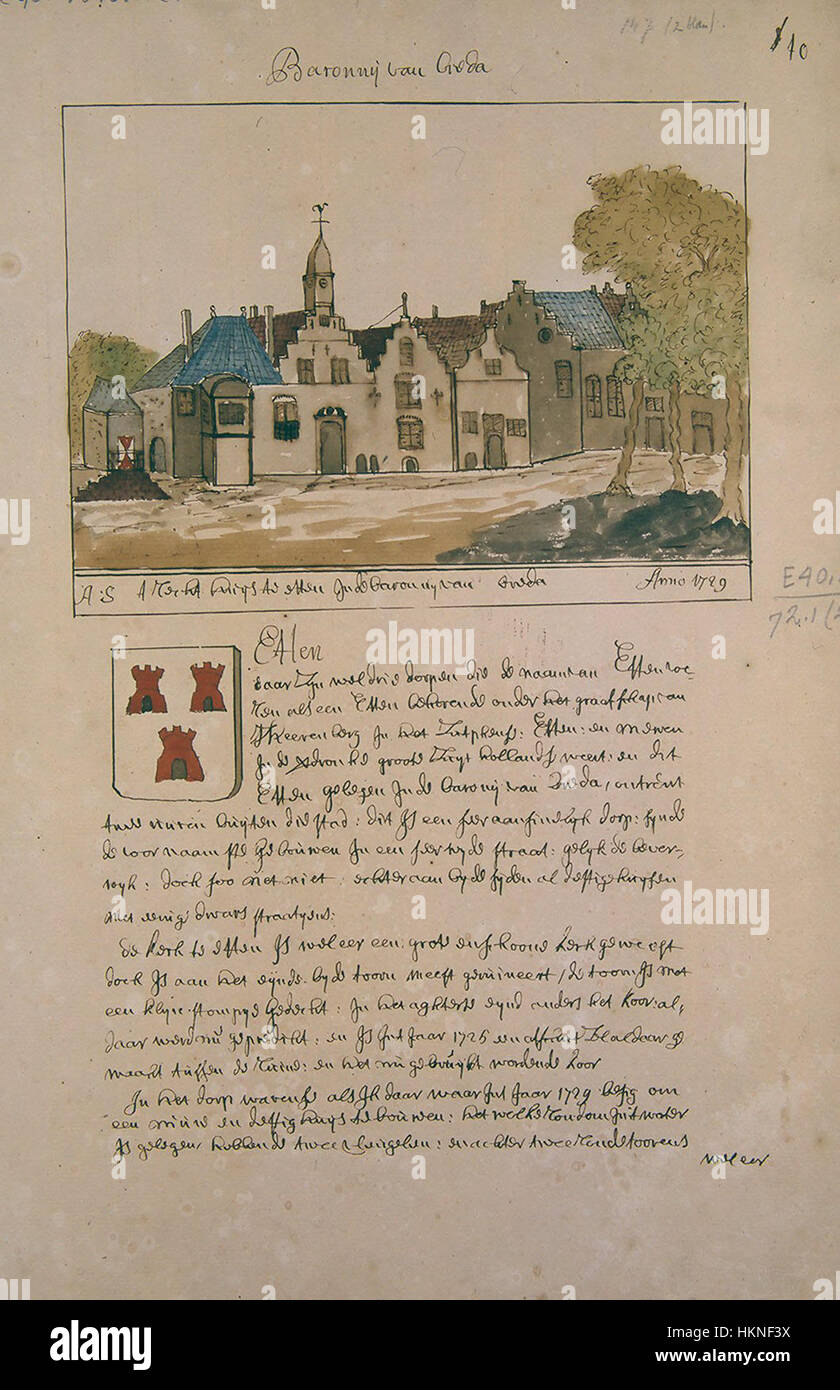 147 (2 blau).
10
Baronnij van Breda
A:S t Recht huijs te etten In de baronnij van breda Anno 1729
E40.
72.1 (2
Etten
daar Zijn wel drie dorpen die de naam van Etten voe-
ren als een Etten behorende onder het graafschap van
sHeerenberg In het Zutphense: Etten: en Meuwen
In de verdronke groote Zuijt hollandse weert: en dit
Etten gelegen In de baronij van Breda, ontrent
twee uuren buijten die stad: dit Is een seer aansinelijk dorp: sijnde
de voornaamste Gebouwen In een seer wijde straat: gelijk de bever-
wijk: doch soo niet: echter aan bijde sijden al deftige huijsen
met eenige dwars straatjens:
de kerk te etten Is wel eer een grote en schoone kerk geweest
doch Is aan het eijnde bij de toorn meest geruineert, de toorn Is met
een klijn stompje gedeckt: In het aghterste eijnd anders het koor: al,
daar werd nu gepredikt: en Is Int Jaar 1725 een affschut aldaar ge
maart tussen de Ruine: en het nu gebruijkt wordende koor
In het dorp waren se als Ik daar was Int Jaar 1729 besig om
een nieuw en deftig huijs te bouwen: het welke Rondom In t water
Is gelegen, hebbende twee vleugelen: en achter twee Ronde toorens
wel eer
alamy
Image ID: HKNF3X
www.alamy.com